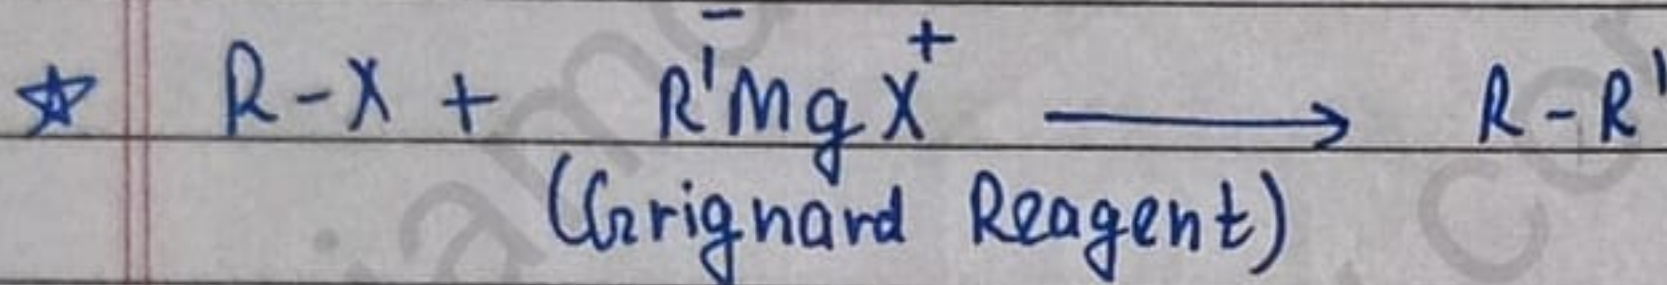 ☆ R-X + R'⁻MgX⁺ ⟶ R-R'
(Grignard Reagent)